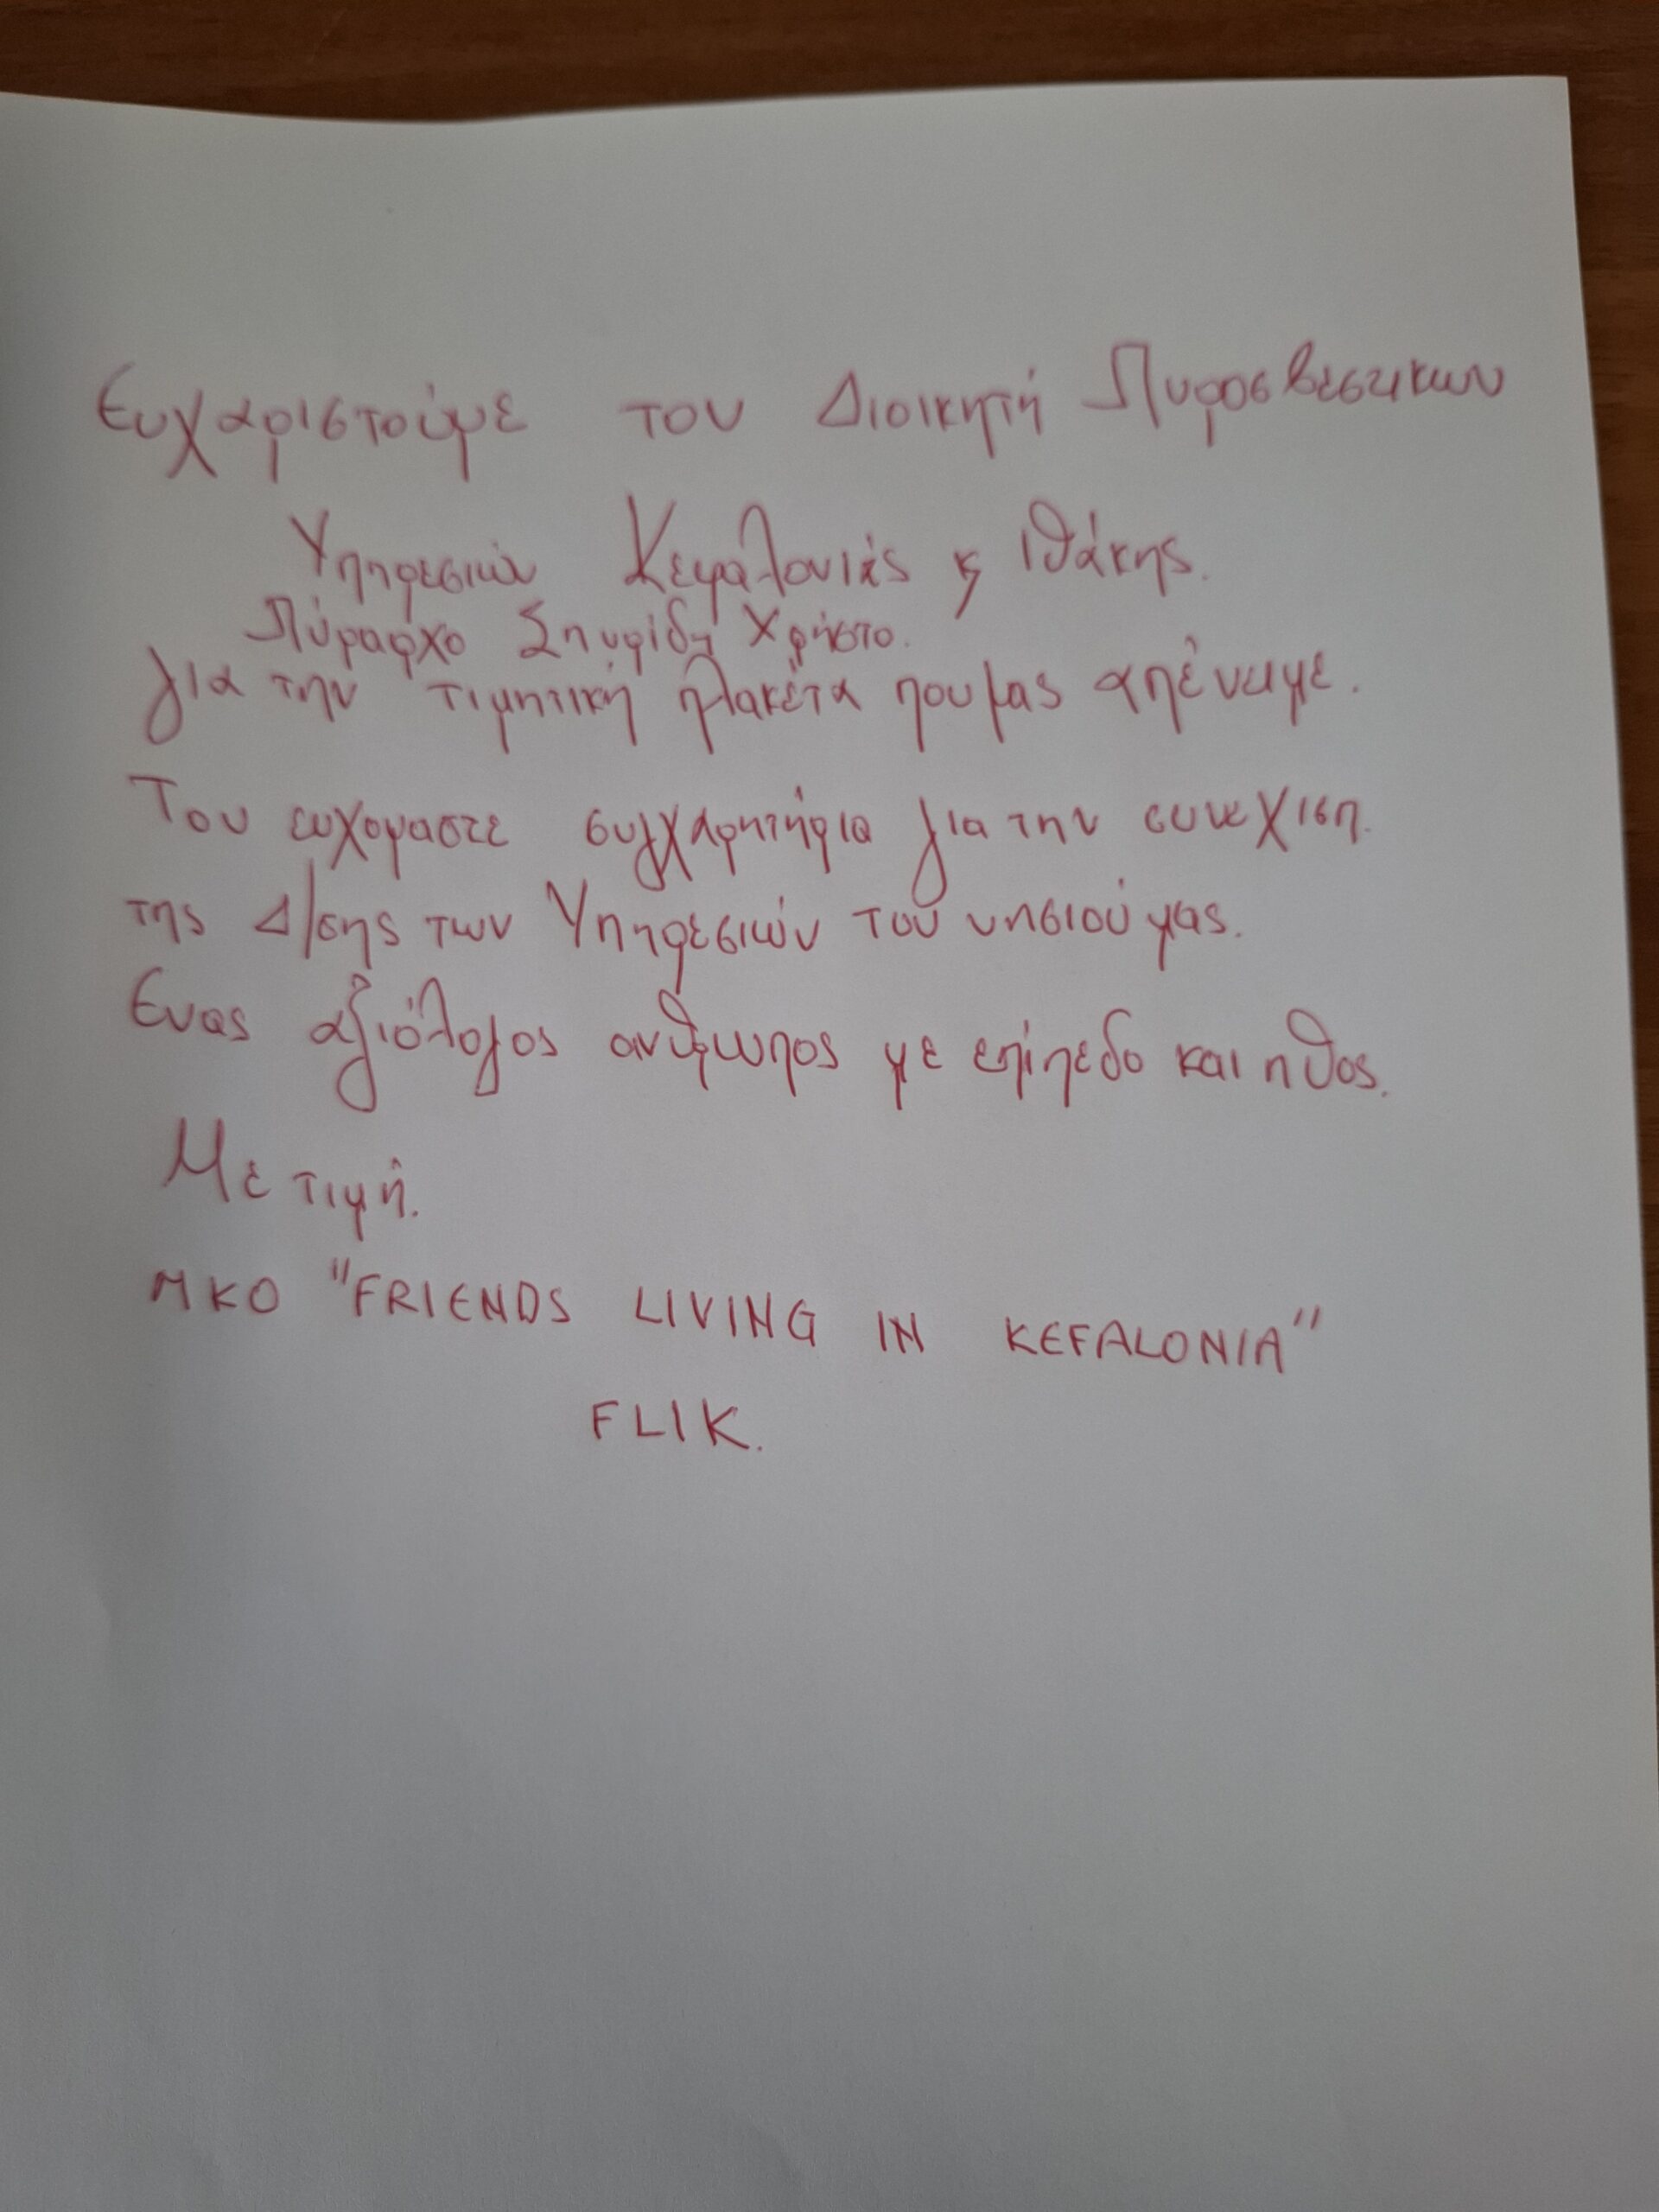 Ευχαριστούμε τον Διοικητή Πυροσβεστικων
Υπηρεσιών Κεφαλονιάς & Ιθάκης.
Πύραρχο Σπυρίδη Χρήστο.
για την τιμητική πλακέτα που μας απένειμε.
Του ευχομαστε συγχαρητήρια για την συνεχιση
της Δ/σης των Υπηρεσιών του νησιού μας.
Ενας αξιόλογος ανθρωπος με επίπεδο και ηθος.
Με τιμή.
ΜΚΟ "FRIENDS LIVING IN KEFALONIA"
FLIK.